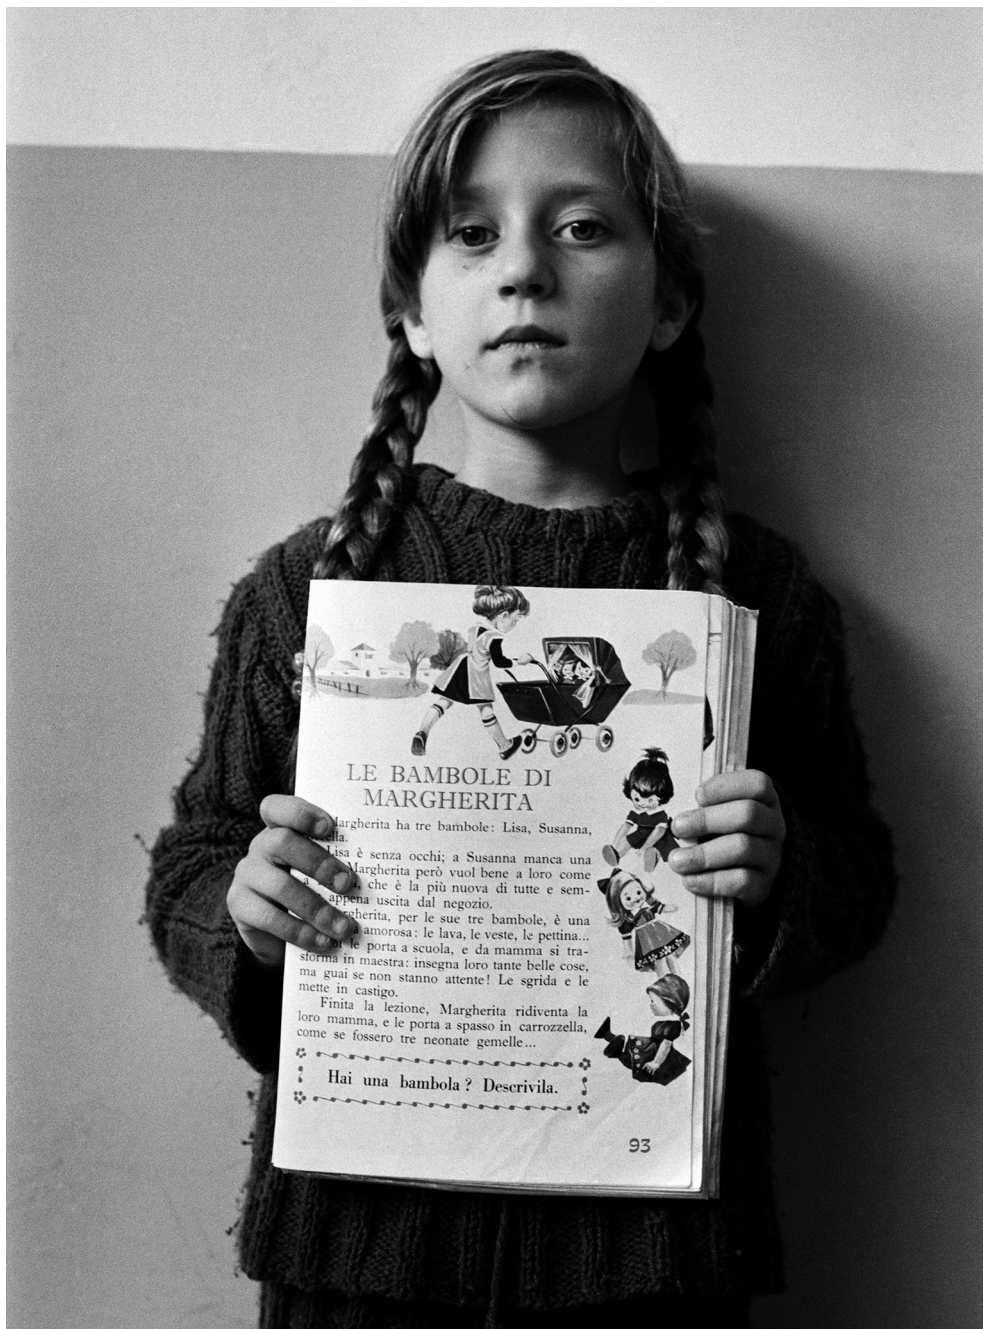 LE BAMBOLE DI
MARGHERITA
Margherita ha tre bambole: Lisa, Susanna,
Lisa è senza occhi; a Susanna manca una
Margherita però vuol bene a loro come
a che è la più nuova di tutte e sem-
appena uscita dal negozio.
Margherita, per le sue tre bambole, è una
amorosa: le lava, le veste, le pettina...
le porta a scuola, e da mamma si tra-
sforma in maestra: insegna loro tante belle cose,
ma guai se non stanno attente! Le sgrida e le
mette in castigo.
Finita la lezione, Margherita ridiventa la
loro mamma, e le porta a spasso in carrozzella,
come se fossero tre neonate gemelle...
Hai una bambola? Descrivila.
93